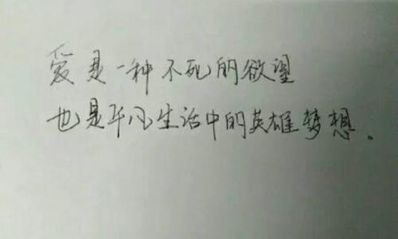 爱是一种不死的欲望
也是平凡生活中的英雄梦想。